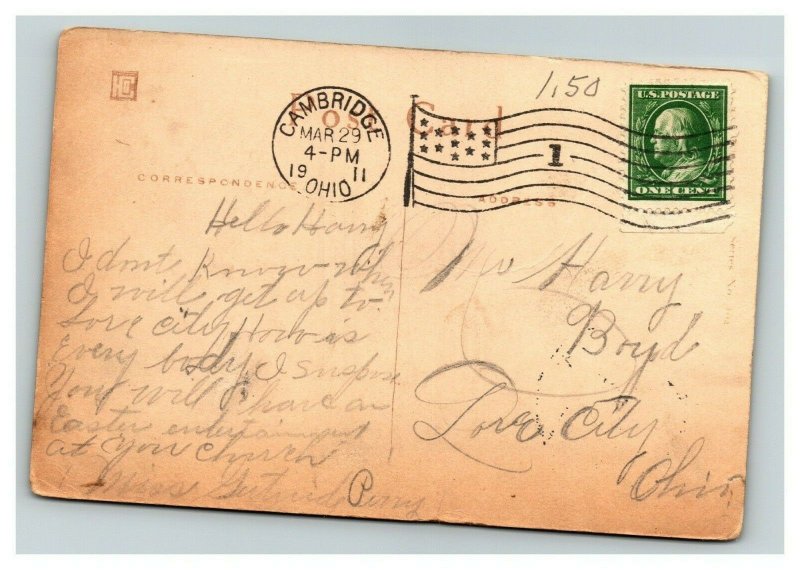 HC
Post Card
1.50
U.S. POSTAGE
ONE CENT
CAMBRIDGE
MAR 29
4-PM
1911
OHIO
1
CORRESPONDENCE
ADDRESS
Hello Harry
I dont Know when
I will get up to
Love City How is
Every body I suspose
You will have an
Easter entertainment
at you church
Miss Gertrude Perry
Mr Harry
Boyd
Love City
Ohio